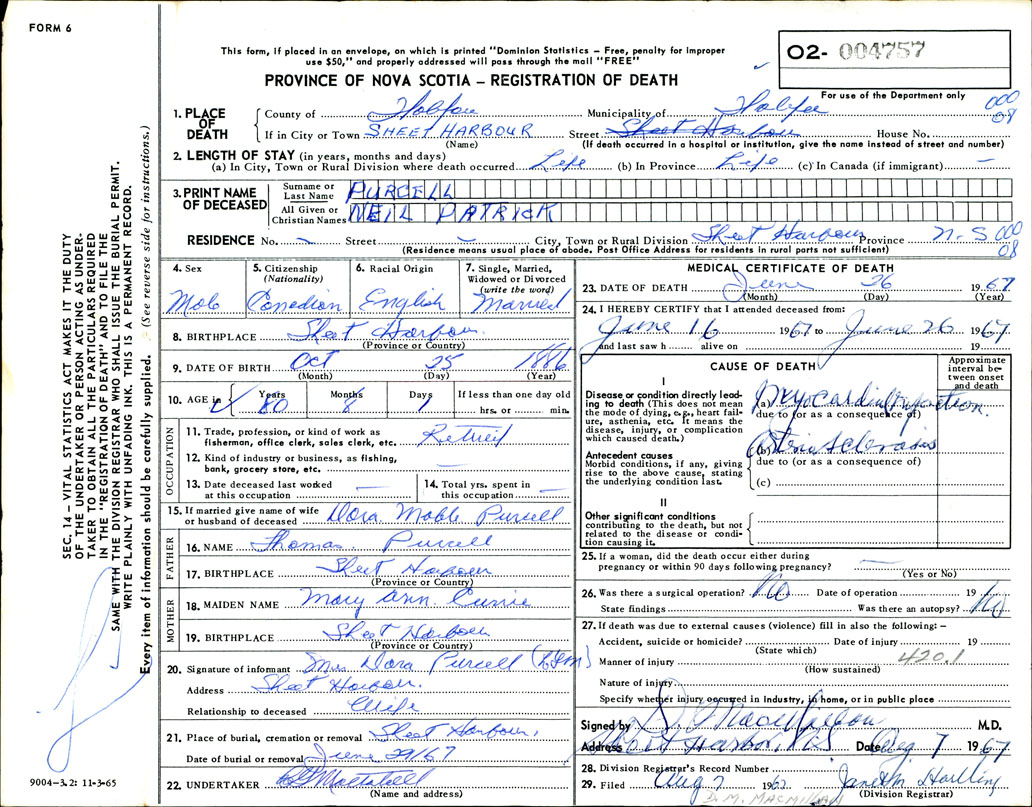 FORM 6
This form, if placed in an envelope, on which is printed "Dominion Statistics – Free, penalty for improper
use $50," and properly addressed will pass through the mail "FREE"
PROVINCE OF NOVA SCOTIA – REGISTRATION OF DEATH
O2- 004757
For use of the Department only
000
08
1. PLACE OF DEATH
County of Halifax Municipality of Halifax
If in City or Town SHEET HARBOUR Street Sheet Harbour House No.
(Name) (If death occurred in a hospital or institution, give the name instead of street and number)
2. LENGTH OF STAY (in years, months and days)
(a) In City, Town or Rural Division where death occurred Life (b) In Province Life (c) In Canada (if immigrant) —
3. PRINT NAME OF DECEASED
Surname or Last Name PURCELL
All Given or Christian Names NEIL PATRICK
RESIDENCE No. — Street — City, Town or Rural Division Sheet Harbour Province N.S 000
08
(Residence means usual place of abode. Post Office Address for residents in rural parts not sufficient)
4. Sex
Male
5. Citizenship
(Nationality)
Canadian
6. Racial Origin
English
7. Single, Married,
Widowed or Divorced
(write the word)
Married
8. BIRTHPLACE Sheet Harbour
(Province or Country)
9. DATE OF BIRTH Oct 25 1886
(Month) (Day) (Year)
10. AGE in Years 80 Months 8 Days 1 If less than one day old
hrs. or min.
OCCUPATION
11. Trade, profession, or kind of work as
fisherman, office clerk, sales clerk, etc. Retired
12. Kind of industry or business, as fishing,
bank, grocery store, etc. —
13. Date deceased last worked
at this occupation —
14. Total yrs. spent in
this occupation —
15. If married give name of wife
or husband of deceased Dora Mable Purcell
FATHER
16. NAME Thomas Purcell
17. BIRTHPLACE Sheet Harbour
(Province or Country)
MOTHER
18. MAIDEN NAME Mary Ann Currie
19. BIRTHPLACE Sheet Harbour
(Province or Country)
20. Signature of informant Mrs Dora Purcell
Address Sheet Harbour.
Relationship to deceased Wife
21. Place of burial, cremation or removal Sheet Harbour,
Date of burial or removal June 29/67
22. UNDERTAKER
(Name and address)
MEDICAL CERTIFICATE OF DEATH
23. DATE OF DEATH June 26 1967
(Month) (Day) (Year)
24. I HEREBY CERTIFY that I attended deceased from:
June 16 1967 to June 26 1967
and last saw h alive on 19
CAUSE OF DEATH
Approximate
interval be-
tween onset
and death
I
Disease or condition directly lead-
ing to death (This does not mean
the mode of dying, e.g., heart fail-
ure, asthenia, etc. It means the
disease, injury, or complication
which caused death.)
(a) Myocardial Infarction.
due to (or as a consequence of)
Antecedent causes
Morbid conditions, if any, giving
rise to the above cause, stating
the underlying condition last.
(b) Arteriosclerosis
due to (or as a consequence of)
(c)
II
Other significant conditions
contributing to the death, but not
related to the disease or condi-
tion causing it.
25. If a woman, did the death occur either during
pregnancy or within 90 days following pregnancy? —
(Yes or No)
26. Was there a surgical operation? No Date of operation 19
State findings Was there an autopsy? No
27. If death was due to external causes (violence) fill in also the following: –
Accident, suicide or homicide? Date of injury 19
(State which)
Manner of injury 420.1
(How sustained)
Nature of injury
Specify whether injury occurred in industry, in home, or in public place
Signed by D. MacMillan M.D.
Address Sheet Harbor, NS Date Aug 7 1967
28. Division Registrar's Record Number
29. Filed Aug 7 1967 Janet M Hartling
(Division Registrar)
D. M. MACMILLAN
SEC. 14 – VITAL STATISTICS ACT MAKES IT THE DUTY
OF THE UNDERTAKER OR PERSON ACTING AS UNDER-
TAKER TO OBTAIN ALL THE PARTICULARS REQUIRED
IN THE "REGISTRATION OF DEATH" AND TO FILE THE
SAME WITH THE DIVISION REGISTRAR WHO SHALL ISSUE THE BURIAL PERMIT.
WRITE PLAINLY WITH UNFADING INK. THIS IS A PERMANENT RECORD.
Every item of information should be carefully supplied. (See reverse side for instructions.)
9004–3.2: 11-3-65